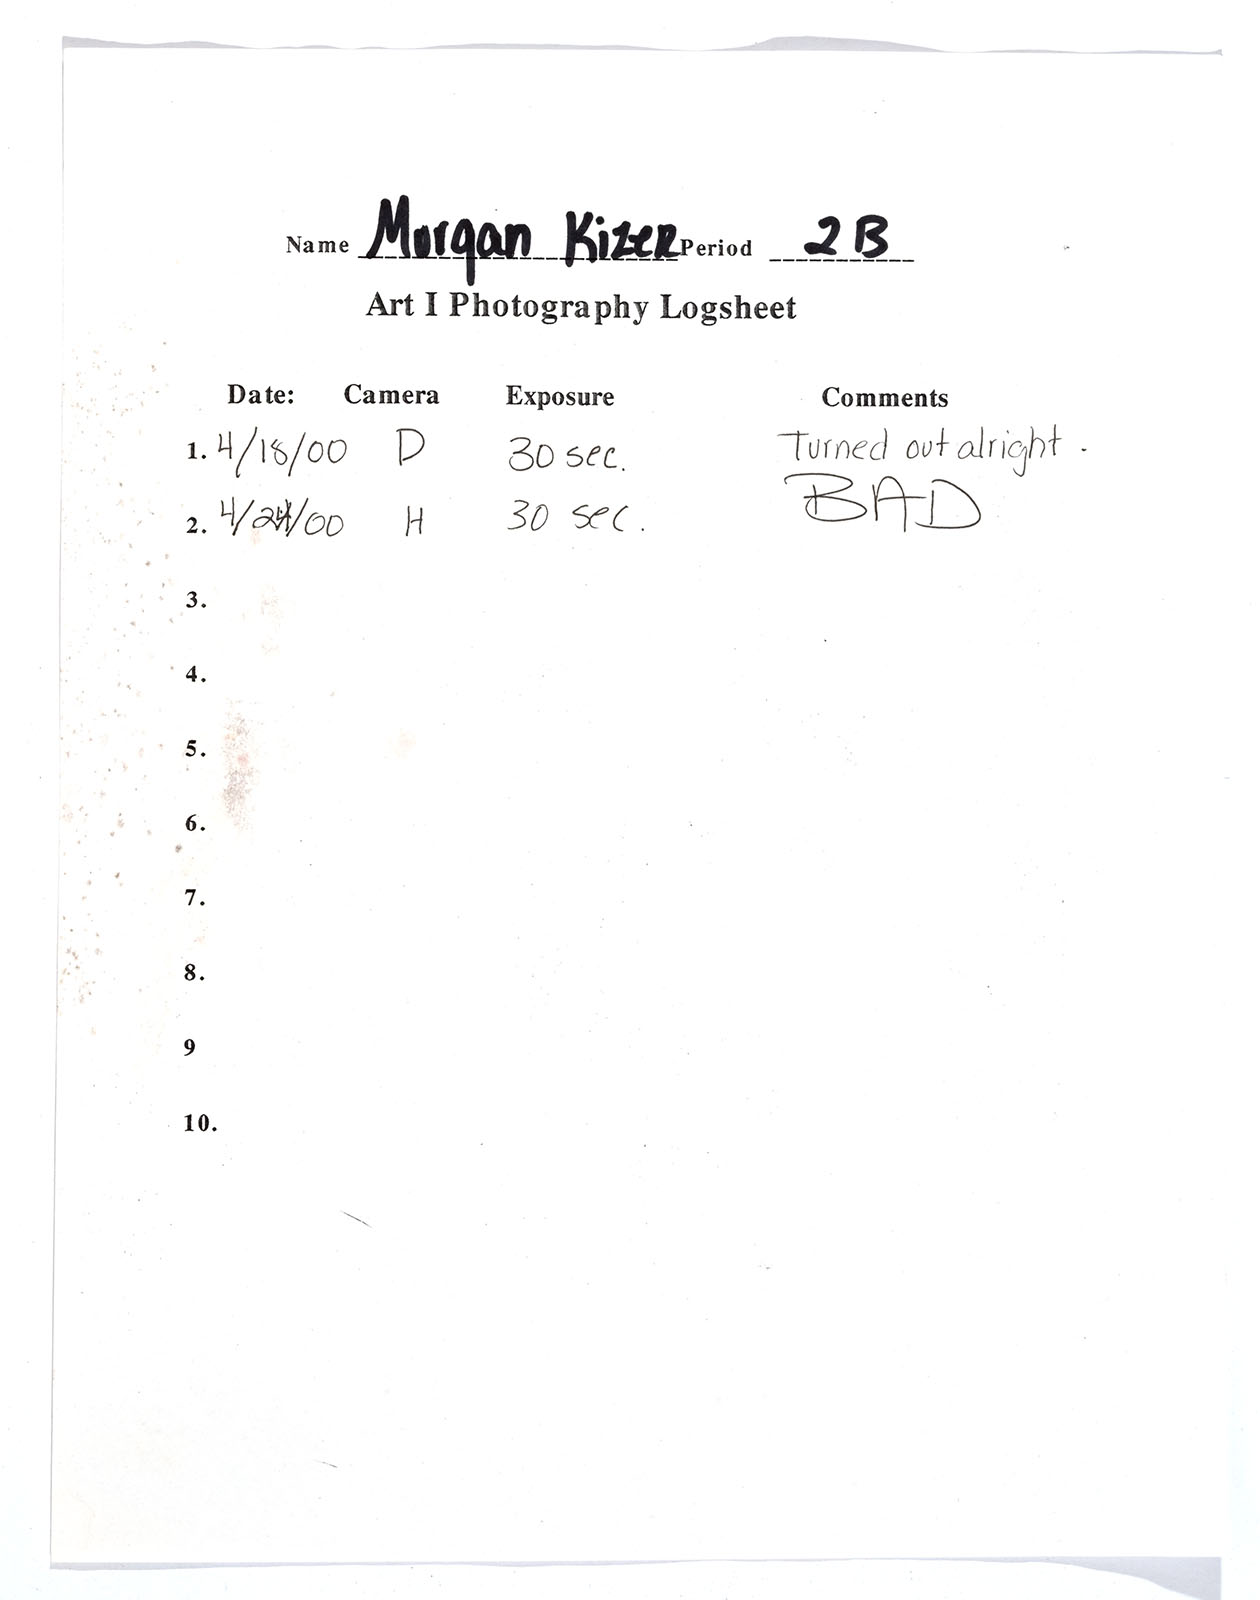 Name Morgan Kizer Period 2B
Art I Photography Logsheet
Date: Camera Exposure Comments
1. 4/18/00 D 30 sec. Turned out alright.
2. 4/24/00 H 30 sec. BAD
3.
4.
5.
6.
7.
8.
9
10.